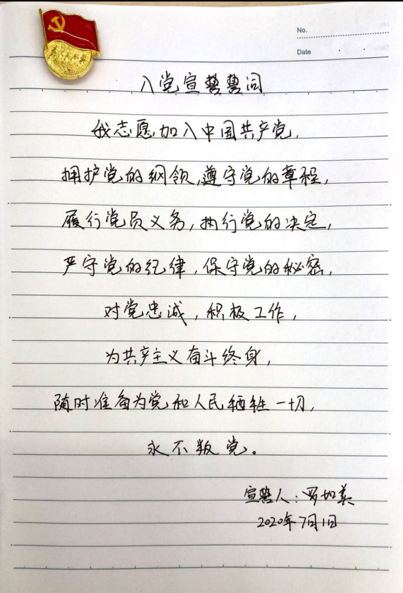 No.
Date
入党宣誓誓词
我志愿加入中国共产党,
拥护党的纲领,遵守党的章程,
履行党员义务,执行党的决定,
严守党的纪律,保守党的秘密,
对党忠诚,积极工作,
为共产主义奋斗终身,
随时准备为党和人民牺牲一切,
永不叛党。
宣誓人:罗如美
2020年7月1日